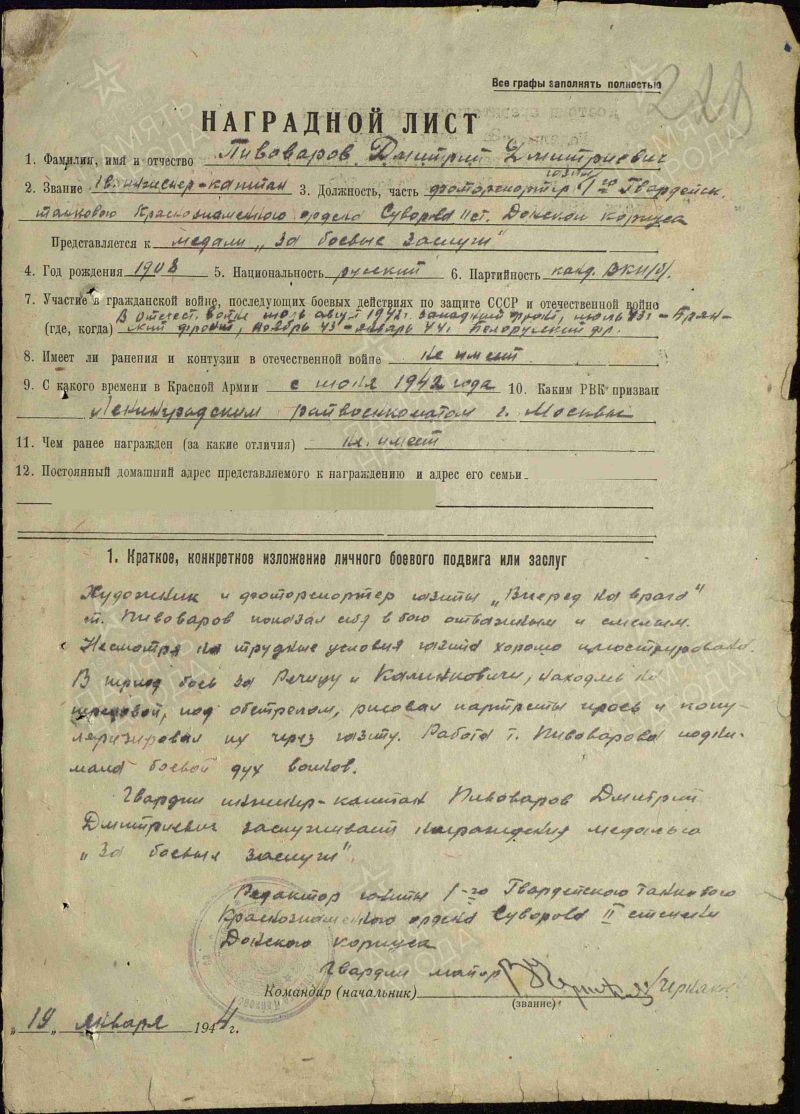 Все графы заполнять полностью
НАГРАДНОЙ ЛИСТ
1. Фамилия, имя и отчество Пивоваров Дмитрий Дмитриевич
2. Звание гв. инженер-капитан 3. Должность, часть фоторепортер газеты 1го Гвардейск.
танкового Краснознаменного ордена Суворова II ст. Донского корпуса
Представляется к медали „За боевые заслуги"
4. Год рождения 1908 5. Национальность русский 6. Партийность канд. ВКП(б).
7. Участие в гражданской войне, последующих боевых действиях по защите СССР и отечественной войне
В отечест. войне июль август 1942г. Западный фронт, июль 43г. – Брян-
(где, когда) ский фронт, ноябрь 43 – январь 44г. Белорусский фр.
8. Имеет ли ранения и контузии в отечественной войне не имеет
9. С какого времени в Красной Армии с июня 1942 года 10. Каким РВК призван
Ленинградским райвоенкоматом г. Москвы
11. Чем ранее награжден (за какие отличия) не имеет
12. Постоянный домашний адрес представляемого к награждению и адрес его семьи
1. Краткое, конкретное изложение личного боевого подвига или заслуг
Художник и фоторепортер газеты „Вперед на врага"
т. Пивоваров показал себя в бою отважным и смелым.
Несмотря на трудные условия газета хорошо иллюстрирована.
В период боев за Речицу и Калинковичи, находясь на
передовой, под обстрелом, рисовал портреты героев и попу-
ляризировал их через газету. Работа т. Пивоварова подни-
мала боевой дух воинов.
Гвардии инженер-капитан Пивоваров Дмитрий
Дмитриевич заслуживает награждения медалью
„За боевые заслуги".
Редактор газеты 1-го Гвардейского танкового
Краснознаменного ордена Суворова II степени
Донского корпуса
Гвардии майор
Командир (начальник)
(звание)
„19" января 1944г.